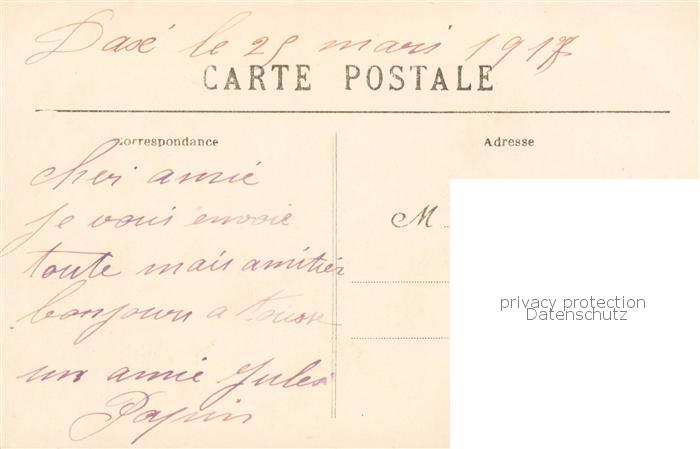 Daxé le 25 mars 1917
CARTE POSTALE
Correspondance
Adresse
cher amie
je vous envoie
toute mais amitier
bonjours a tousse
un amie Jules
Papin
M
privacy protection
Datenschutz